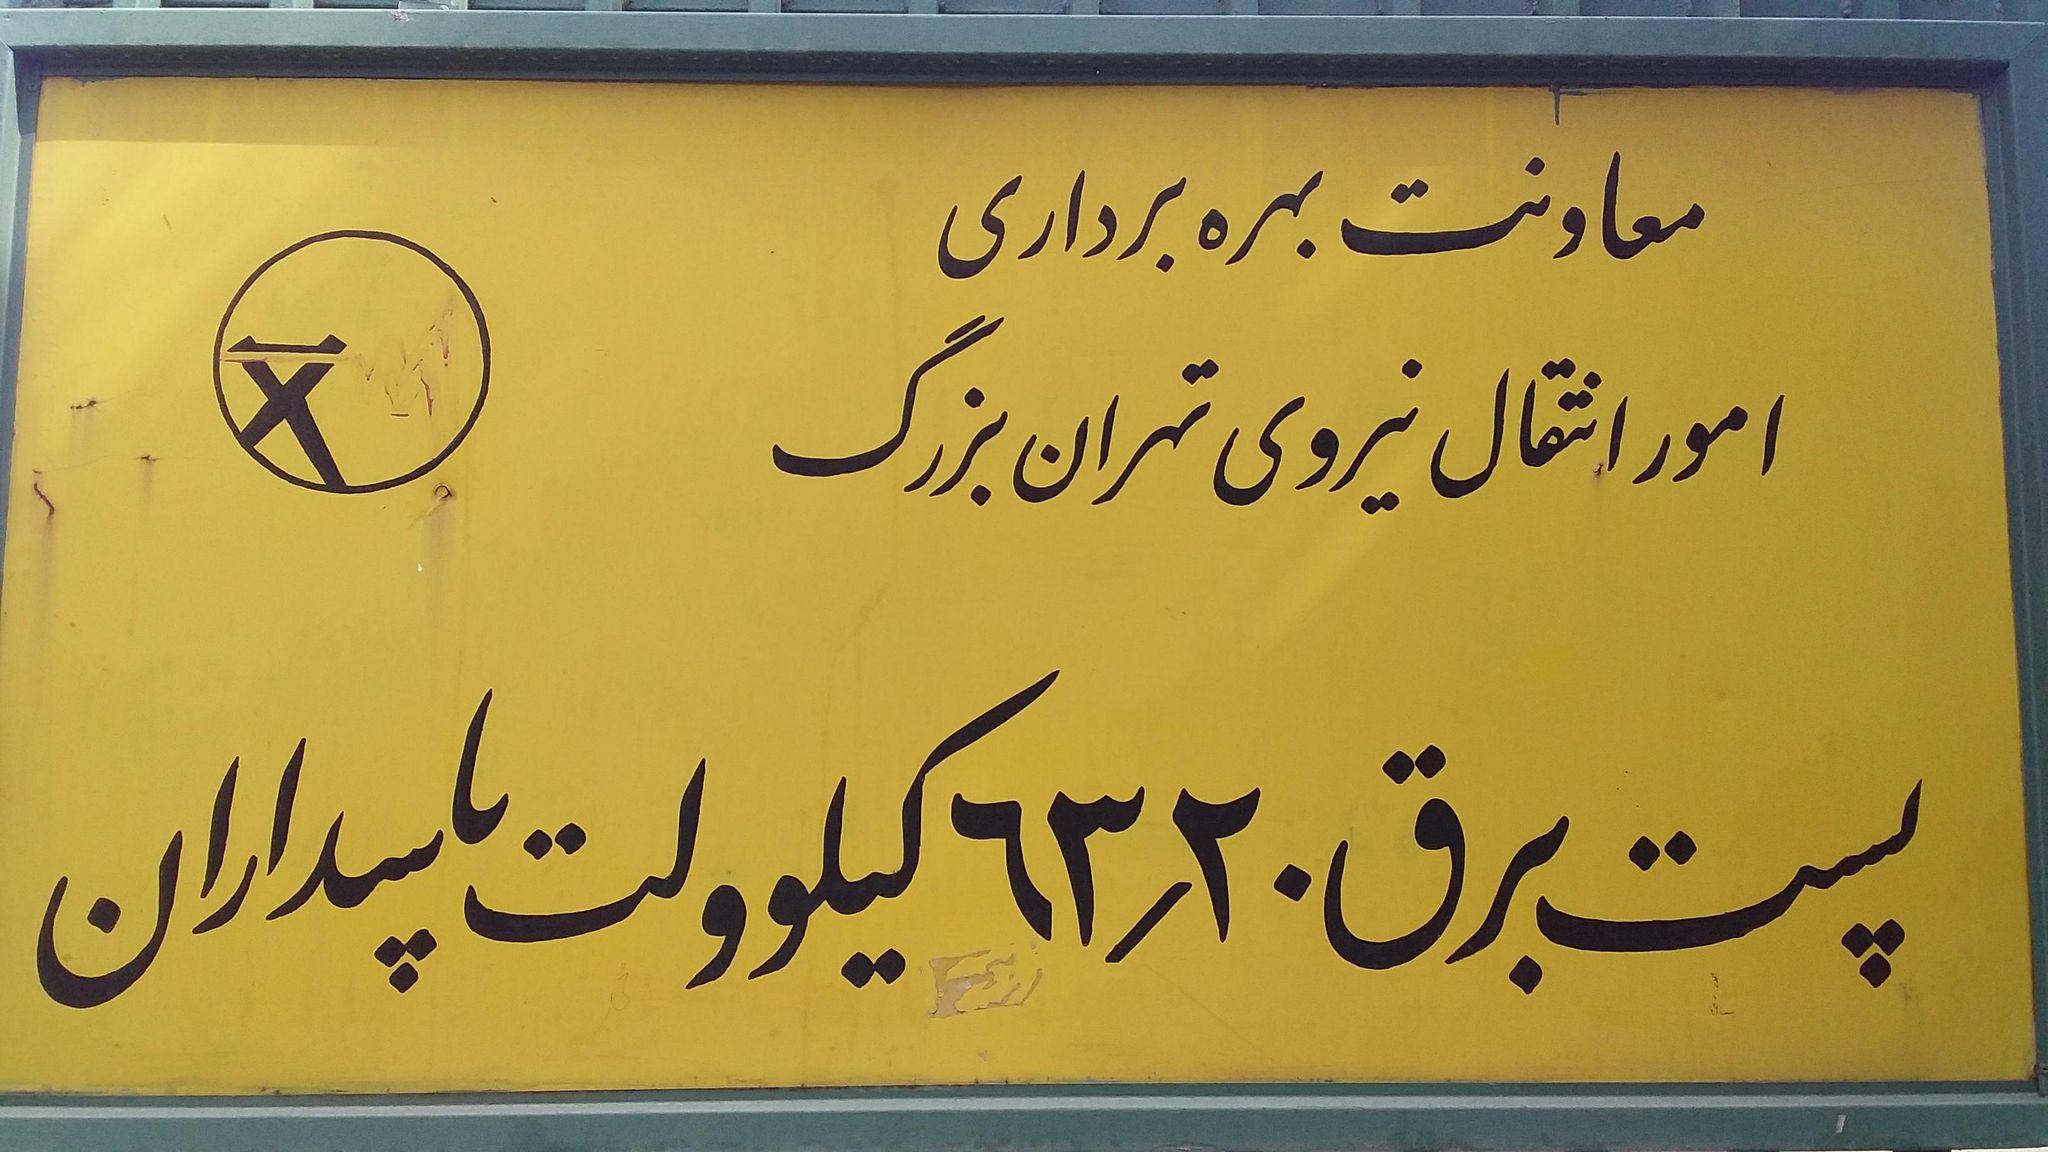 معاونت بهره برداری
امور انتقال نیروی تهران بزرگ
پست برق ۶۳/۲۰ کیلوولت پاسداران